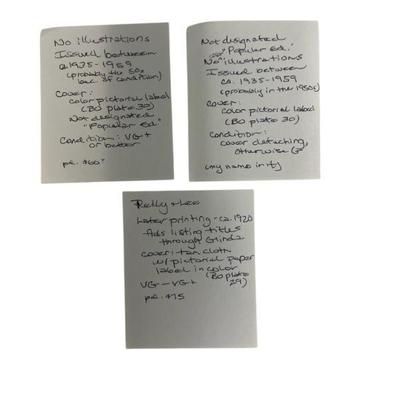 No illustrations
Issued between
ca 1935-1959
(probably the 50s
bec. of condition)
Cover:
color pictorial label
(BO plate 30)
Not designated
"Popular Ed."
Condition: VG+
or better
pd. $60
Not designated
"Popular Ed."
No illustrations
Issued between
ca. 1935-1959
(probably in the 1950s)
Cover:
color pictorial label
(BO plate 30)
Condition:
cover detaching,
otherwise
(my name in it)
Reilly & Lee
Later printing - ca. 1920
Ads listing titles
through Glinda
cover: tan cloth
w/ pictorial paper
label in color
(BO plate
29)
VG - VG+
pd. $75